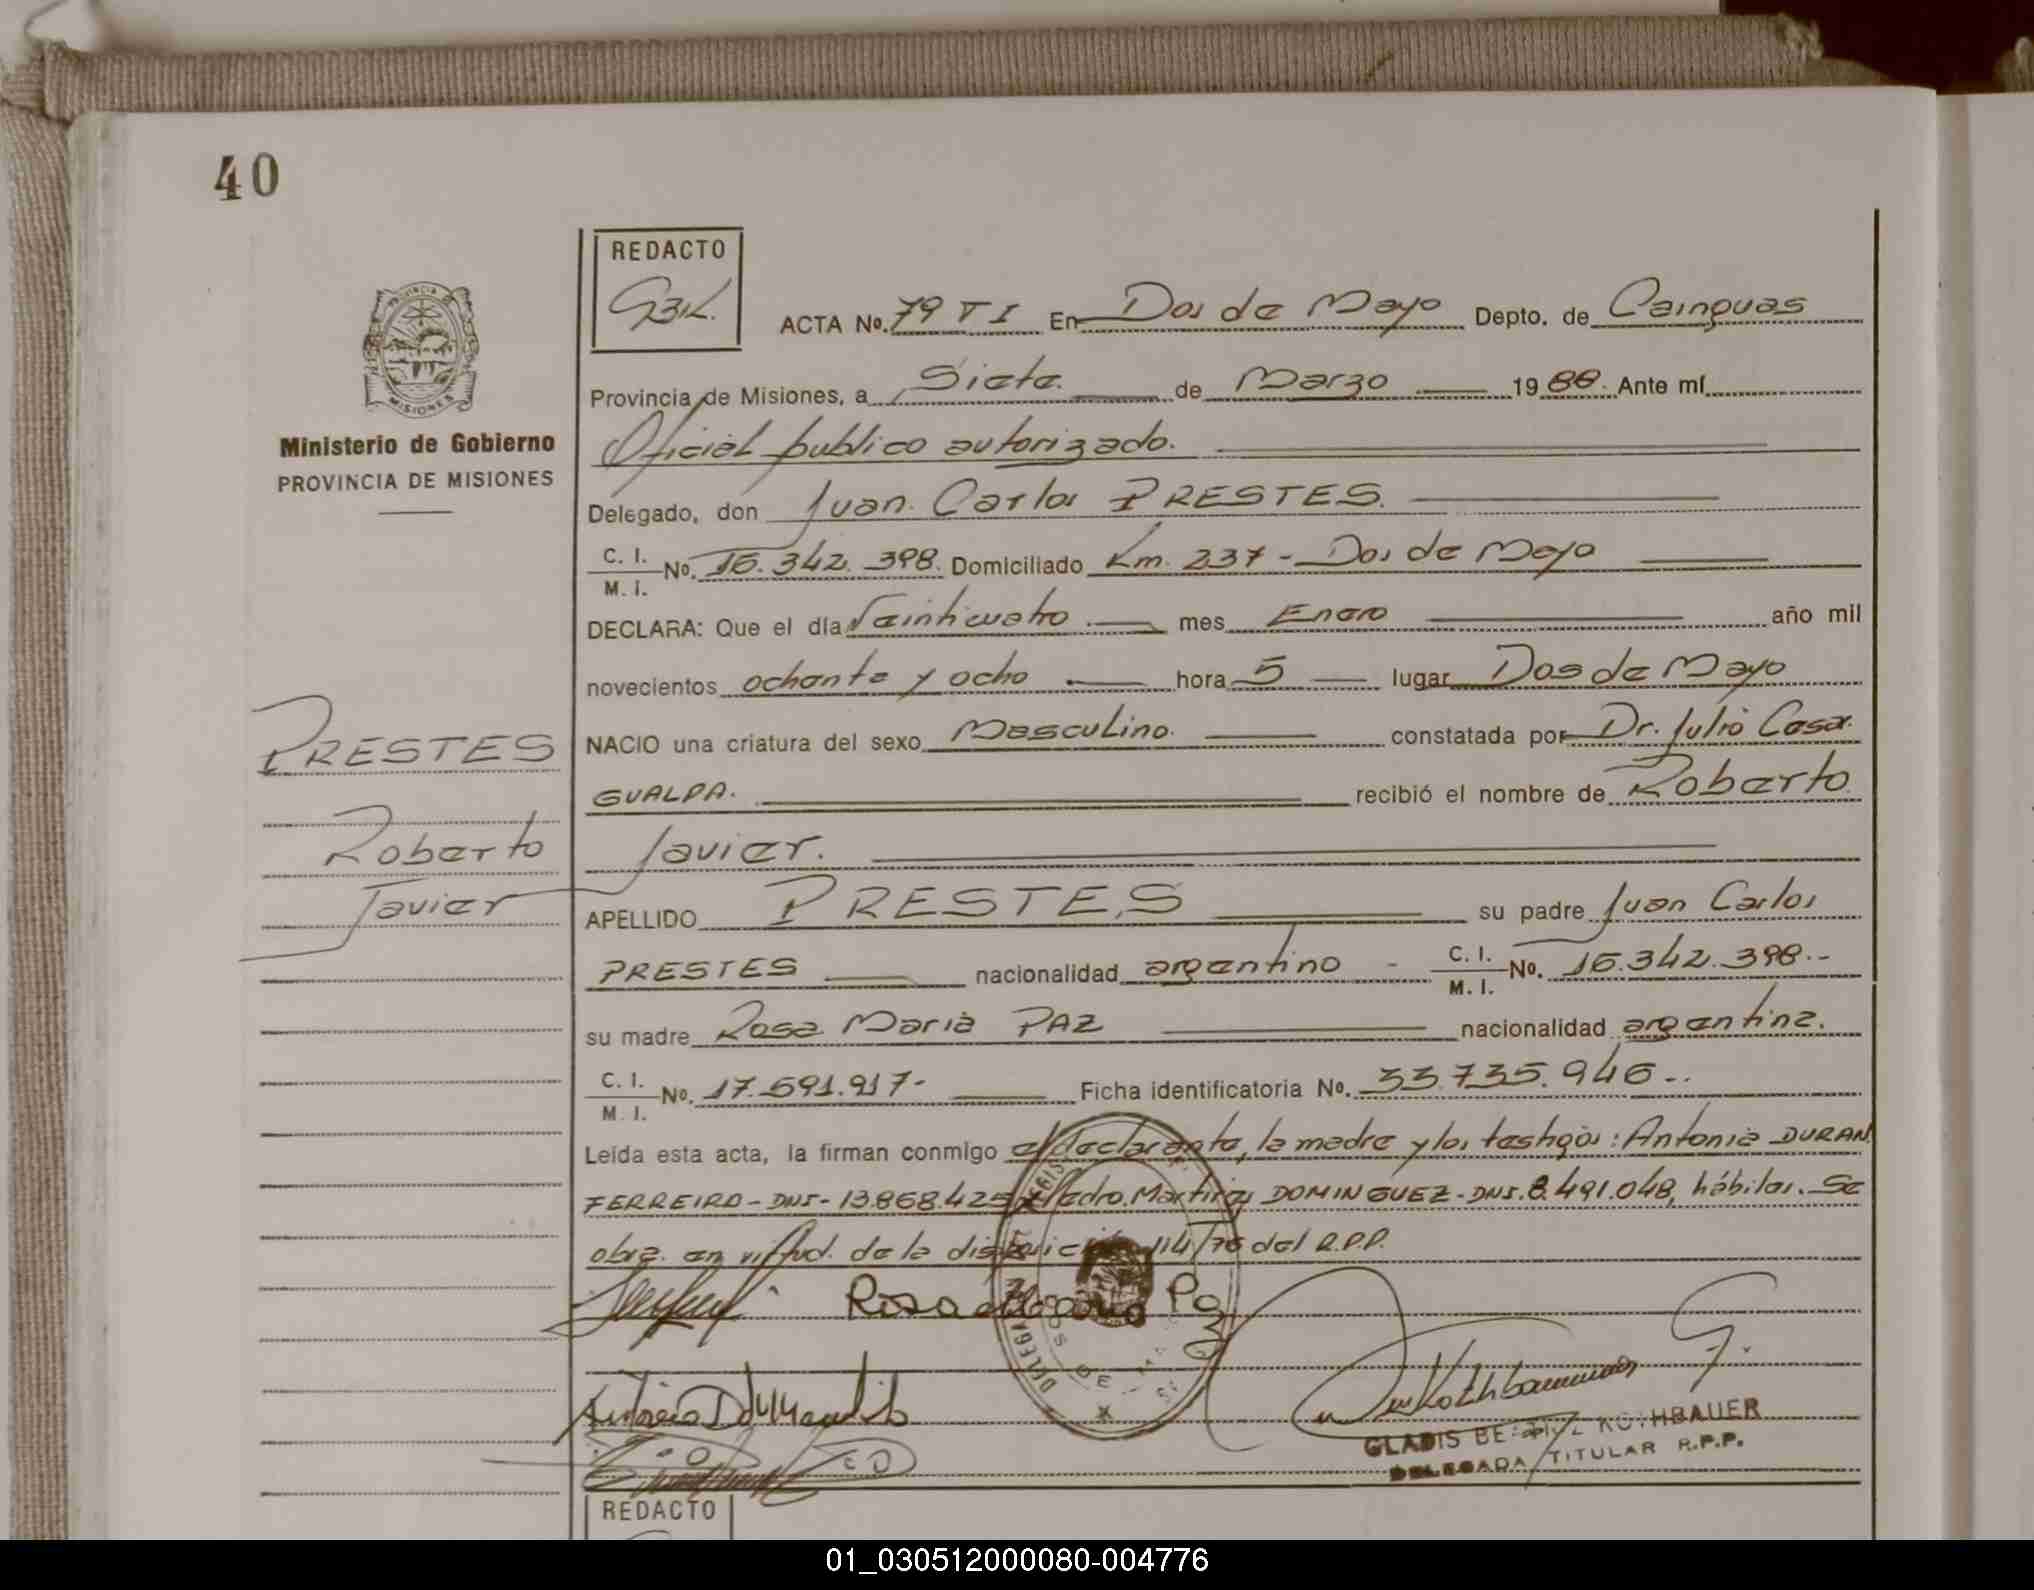 40
REDACTO
PROVINCIA DE
MISIONES
ACTA No. 79 T I En Dos de Mayo Depto. de Cainguas
Provincia de Misiones, a Siete de Marzo 1988. Ante mí
Ministerio de Gobierno
PROVINCIA DE MISIONES
Oficial publico autorizado.
Delegado, don Juan Carlos PRESTES.
C. I. M. I. No. 16.342.398. Domiciliado Km. 237 - Dos de Mayo
DECLARA: Que el día Veinticuatro mes Enero año mil
novecientos ochenta y ocho hora 5 lugar Dos de Mayo
PRESTES
Roberto
Javier
NACIO una criatura del sexo Masculino. constatada por Dr. Julio Cesar
GUALPA. recibió el nombre de Roberto
Javier.
APELLIDO PRESTES su padre Juan Carlos
PRESTES nacionalidad argentino - C. I. M. I. No. 16.342.398.-
su madre Rosa Maria PAZ nacionalidad argentina.
C. I. M. I. No. 17.591.917- Ficha identificatoria No. 33.735.946-.
Leída esta acta, la firman conmigo el declarante, la madre y los testigos: Antonia DURAN
FERREIRO - DNI - 13.868.425 Pedro Martires DOMINGUEZ - DNI. 8.491.048, hábiles. Se
obra en virtud de la disposición 114/76 del R.P.P.
Rosa Maria Paz
GLADIS BEATRIZ KOTHBAUER
DELEGADA TITULAR R.P.P.
REDACTO
01_030512000080-004776